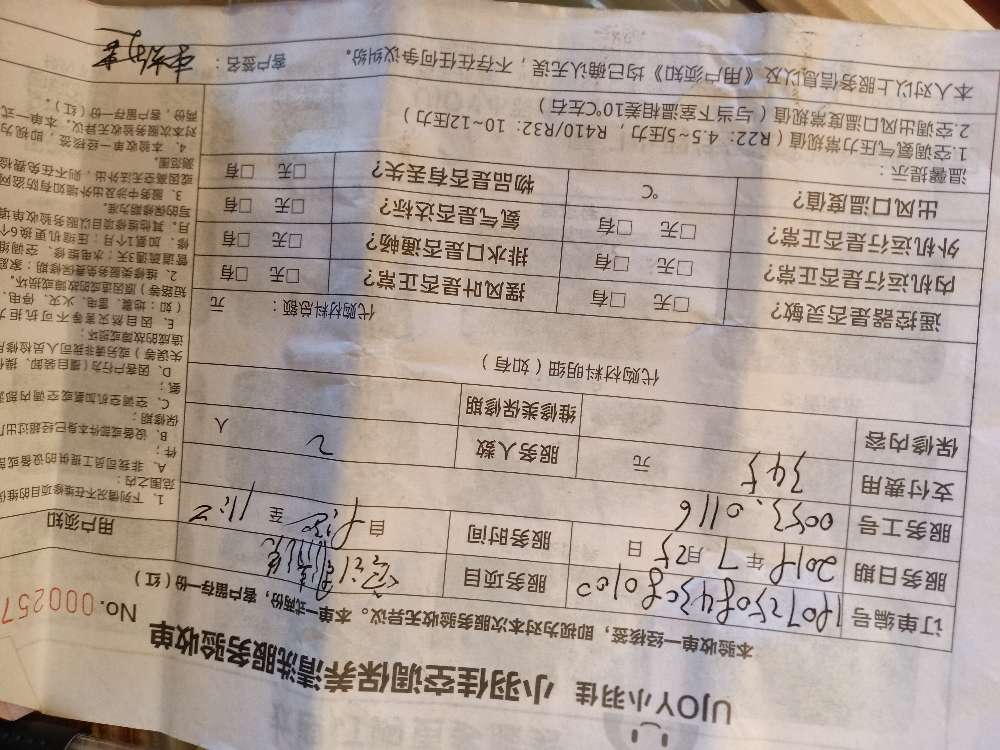 UJOY小羽佳 小羽佳空调保养清洗服务验收单
No. 000257
本验收单一经核签，即视为对本次服务验收无异议。本单一式两份，客户留存一份（红）
订单编号 服务项目 用户须知
服务日期 2018年7月25日 服务时间 自 8:30 至
服务工号 0053.0116
支付费用 345 元 服务人数 2 人
保修内容 维修类保修期
代购材料明细（如有）
代购材料总额： 元
遥控器是否灵敏？ □无 □有 摆风叶是否正常？ □无 □有
内机运行是否正常？ □无 □有 排水口是否通畅？ □无 □有
外机运行是否正常？ □无 □有 氨气是否达标？ □无 □有
出风口温度值？ ℃ 物品是否有丢失？ □无 □有
温馨提示：
1.空调氨气压力常规值（R22：4.5~5压力，R410/R32：10~12压力）
2.空调出风口温度常规值（与当下室温相差10℃左右）
本人对以上服务信息以及《用户须知》均已确认无误，不存在任何争议纠纷。 客户签名：
1、下列情况不在维修项目的维
范围之内：
A、非我司员工提供的设备或
件；
B、设备或部件本身已经超过出
保修期；
C、空调空机加氨或空调内部
氨；
D、因客户行为（擅自装卸、操
失误等）或另请非我司人员检修
造成的故障或损坏；
E、因自然灾害等不可抗拒
（如：地震、雷电、火灾、停电、
短路等）原因造成的故障或损坏。
2、维修类服务免费保修期：家庭
管道疏通3天；水电维修、空调维
修、加氨1个月；压缩机更换6个
月，其他维修项目以服务验收单填
写的保修期为准。
3、服务中涉及出外墙如有防盗网
因或需空无法外出，则不在免费检
测范围。
4、本验收单一经核签，即视为
对本次服务验收无异议。本单一式
两份，客户留存一份（红）。